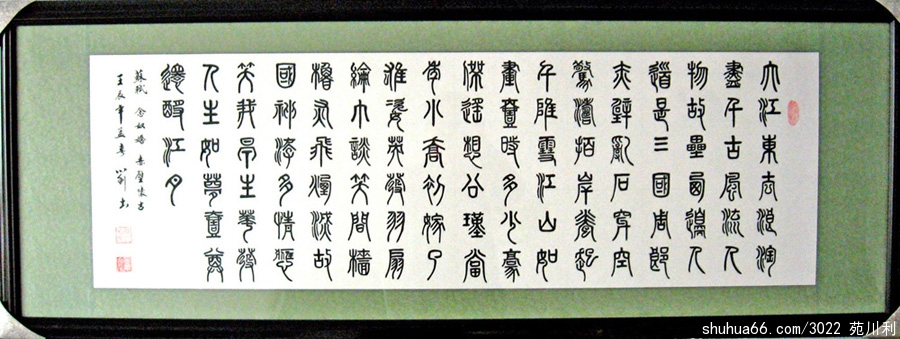 大江東去浪淘
盡千古風流人
物故壘西邊人
道是三國周郎
赤壁亂石穿空
驚濤拍岸卷起
千堆雪江山如
畫壹時多少豪
傑遙想公瑾當
年小喬初嫁了
雄姿英發羽扇
綸巾談笑間檣
櫓灰飛煙滅故
國神遊多情應
笑我早生華發
人生如夢壹尊
還酹江月
蘇軾 念奴嬌 赤壁懷古
壬辰年孟春 川利书
shuhua66.com/3022 苑川利